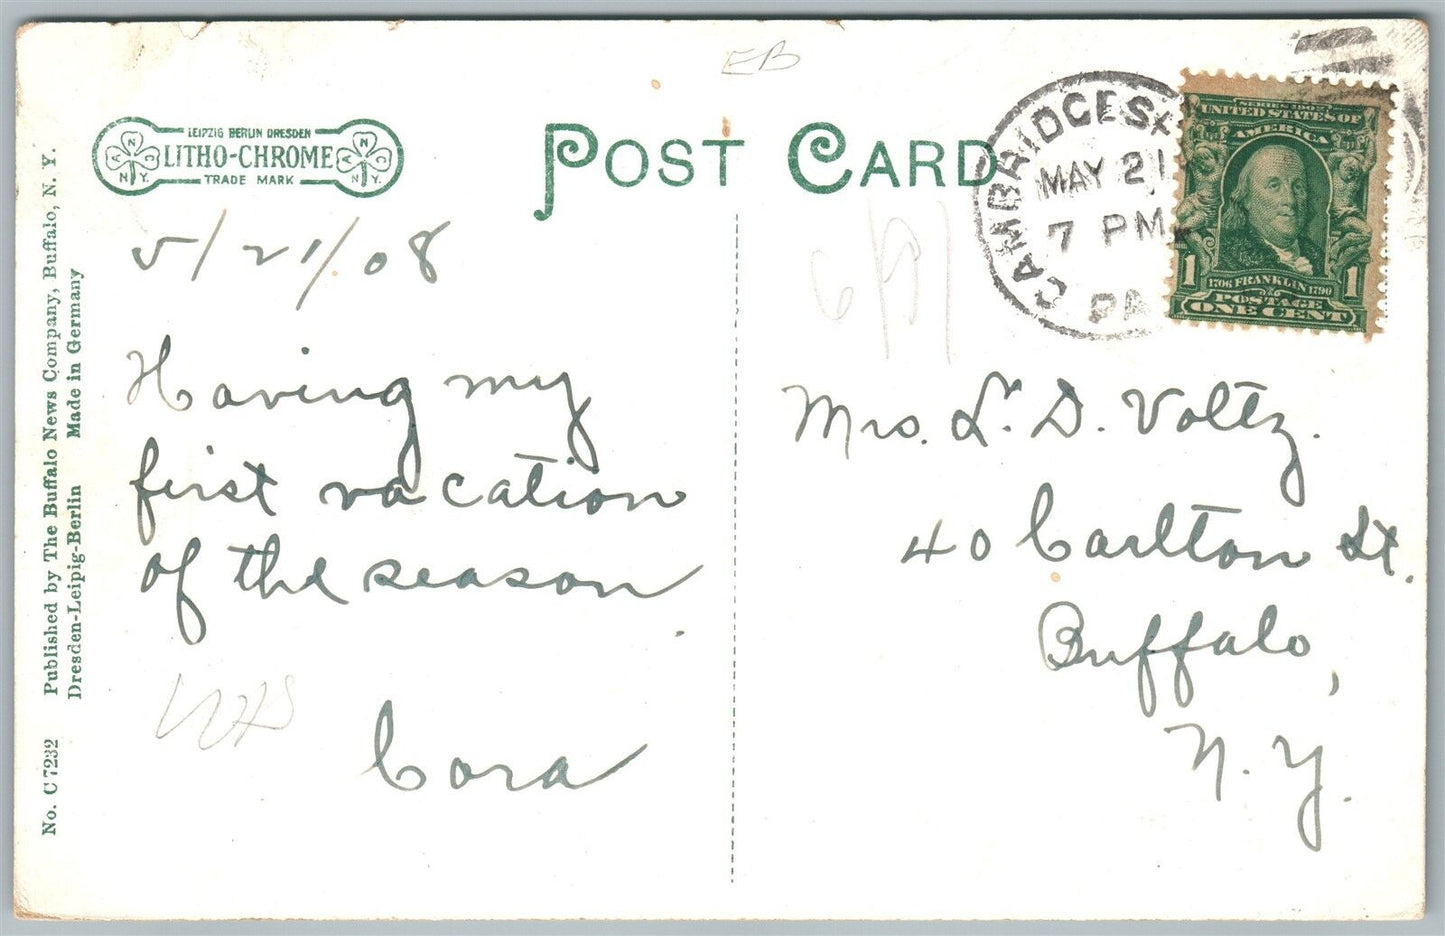 EB
LEIPZIG BERLIN DRESDEN
LITHO-CHROME
TRADE MARK
A N C
N.Y.
A N C
N.Y.
POST CARD
CAMBRIDGE
MAY 21
7 PM
PA
SERIES 1902
UNITED STATES OF
AMERICA
1 1
1706 FRANKLIN 1790
POSTAGE
ONE CENT
5/21/08
Having my
first vacation
of the season
.
Cora
Mrs. L. D. Voltz.
40 Carlton St.
Buffalo,
N.Y.
No. C 7232 Published by The Buffalo News Company, Buffalo, N. Y.
Dresden-Leipig-Berlin Made in Germany